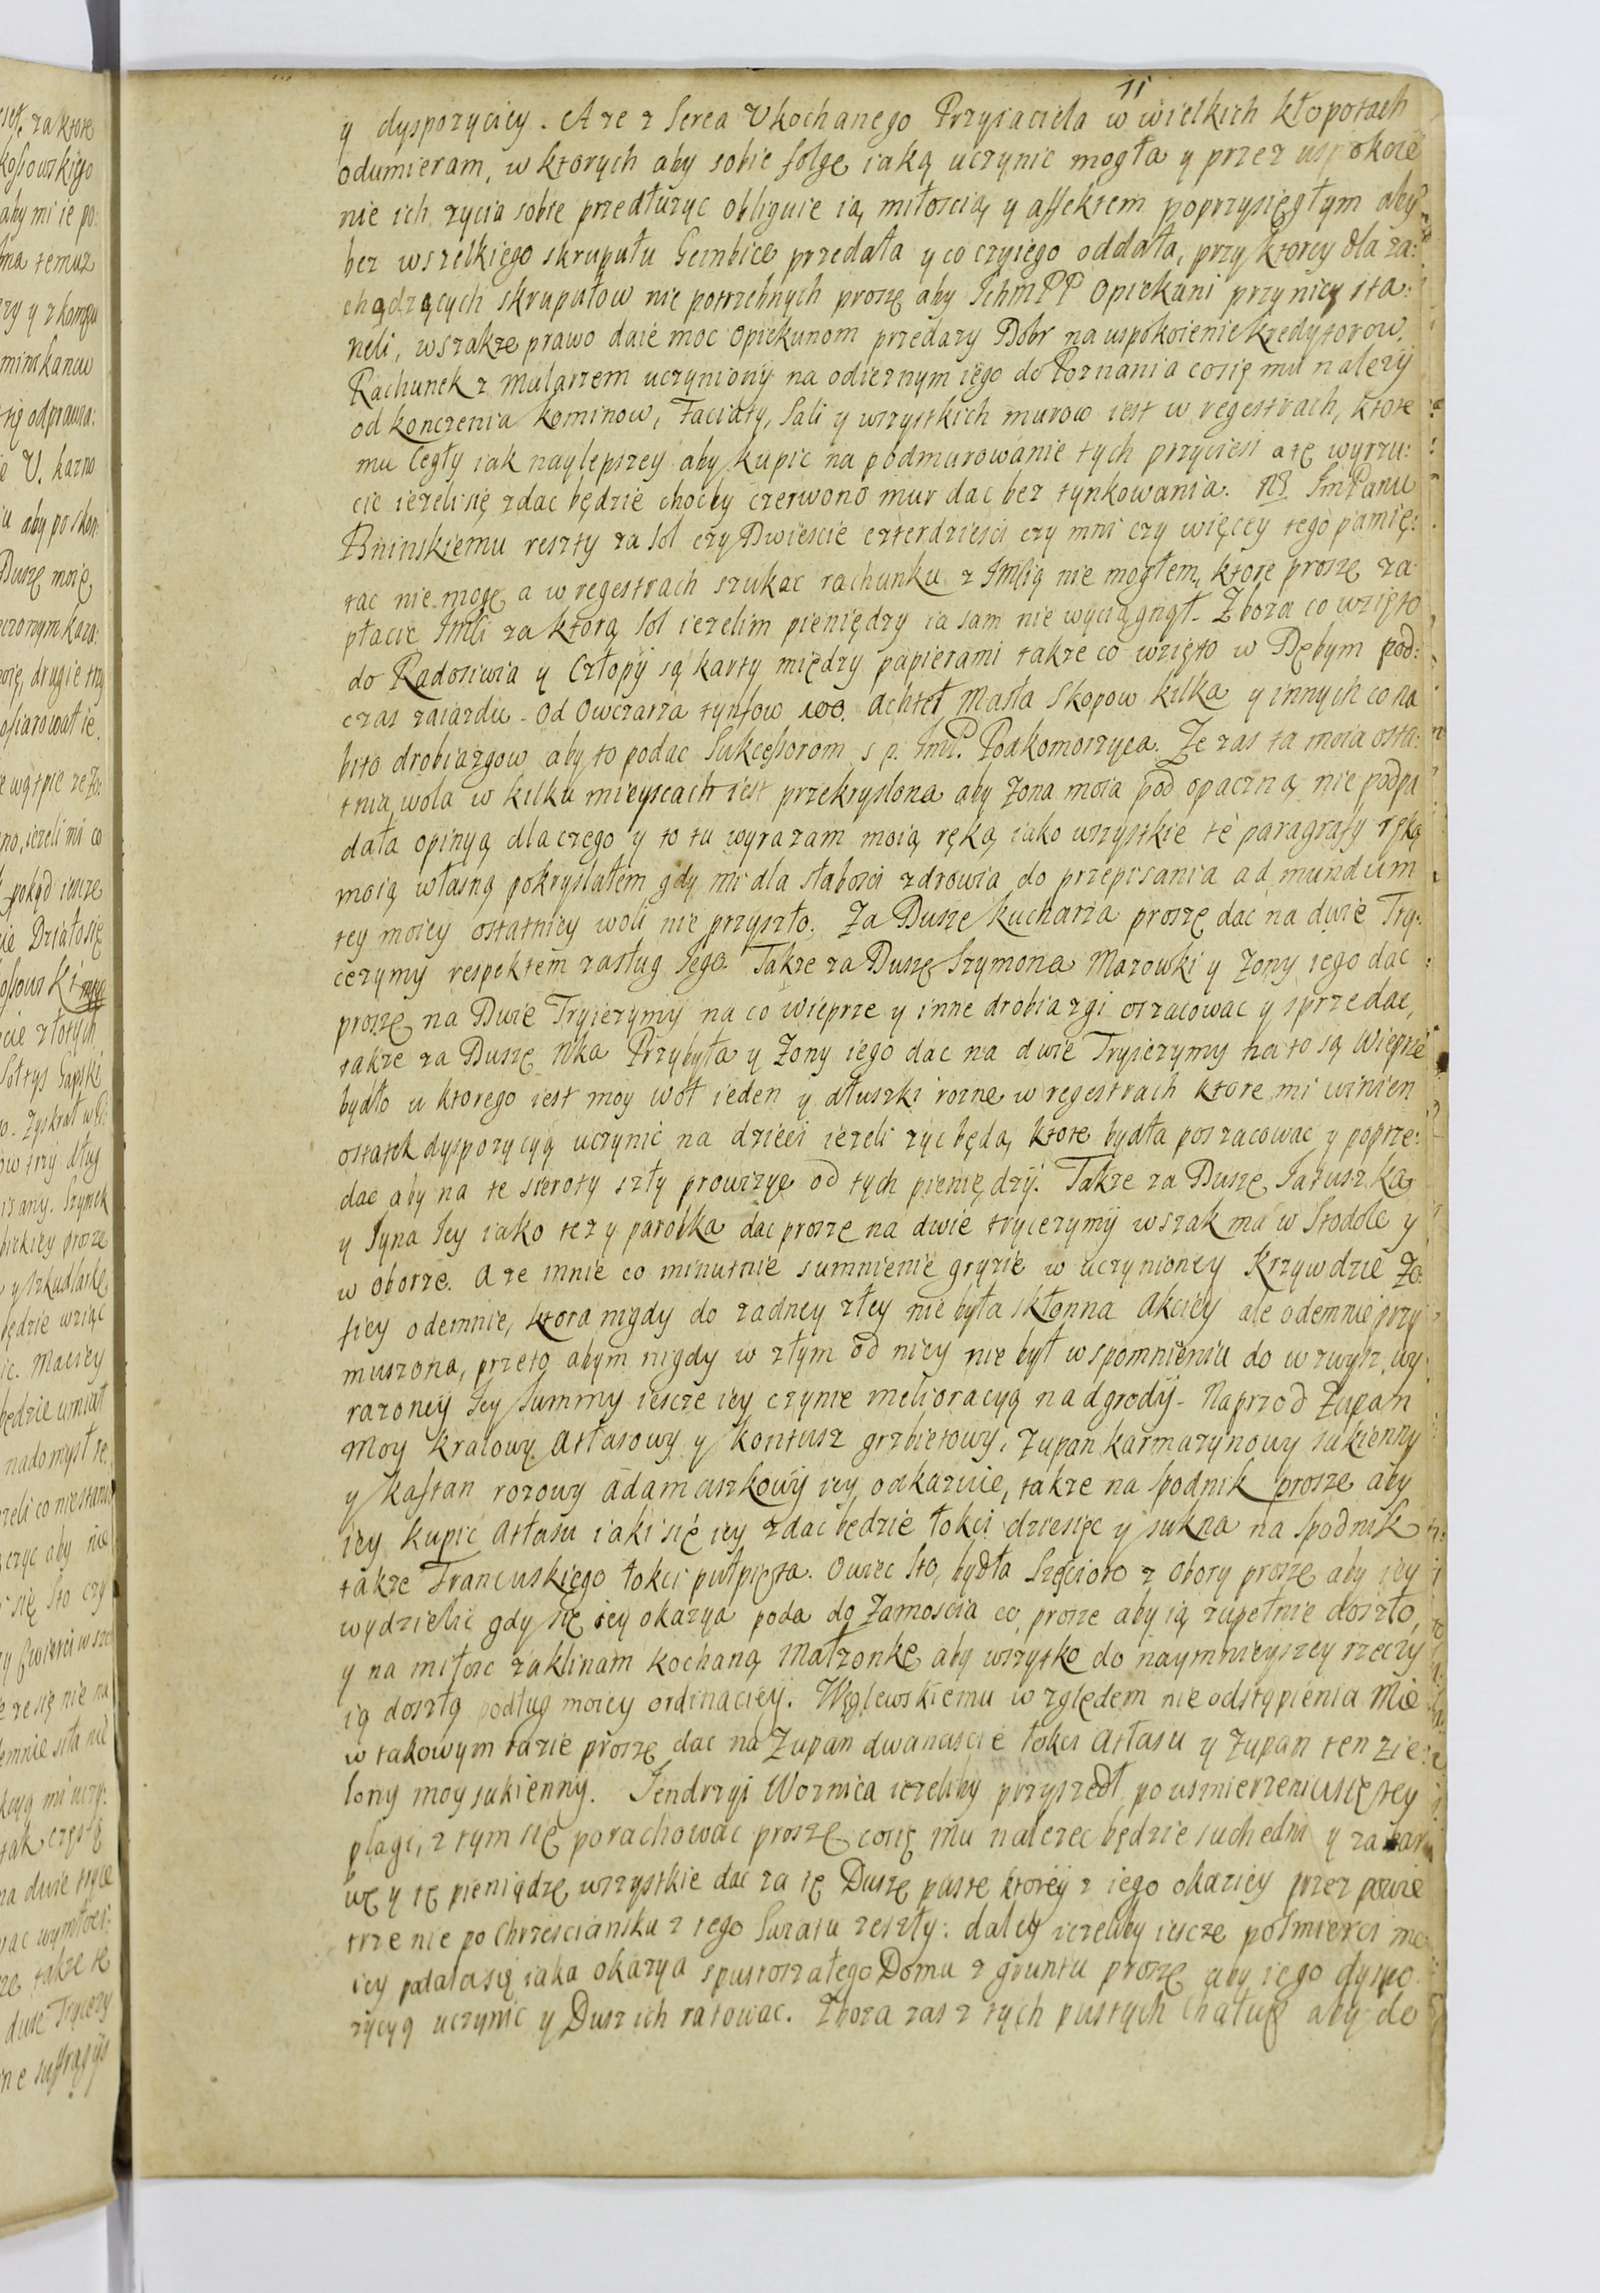 11
y dyspozycięy. A ze z Serca Vkochanego Przyiaciela w wielkich kłopotach
odumieram, w ktorych aby sobie folgę iaką uczynic mogła y przez uspokoie
nie ich zycia sobie przedłuzyc obliguie ią miłoscią y affektem poprzysięgłym aby
bez wszelkiego skrupułu Gembice przedała y co czyiego oddała, przy ktorey dla za:
chądzących skrupułow nie potrzebnych proszę aby IchmPP Opiekuni przy niey sta:
neli, wszakze prawo daie moc Opiekunom przedazy Dobr na uspokoienie kredytorow.
Rachunek z Mularzem uczyniony na odieznym iego do Poznania cosię mu nalezy
od konczenia kominow, Faciaty, Sali y wszystkich murow iest w regestrach, ktore
mu Cegły iak naylepszey aby kupic na podmurowanie tych przyciesi a tę wyrzu:
cie iezeli się zdac będzie chocby czerwono mur dac bez tynkowania. NB. ImPanu
Bninskiemu reszty za sol czy Dwiescie czterdziesci czy mni czy więcey tego pamię:
tac nie mogę a w regestrach szukac rachunku z ImCią nie mogłem, ktore proszę za
płacic ImCi za ktorą sol iezelim pieniędzy ia sam nie wyciągnął. Zboza co wzięto
do Radosiwia y Człopy są karty między papierami takze co wzięto w Dębym pod:
czas zaiazdu. Od Owczarza tynfow 100. Achtel Masła Skopow kilka y innych co na
brto drobiazgow aby to podac Sukcessorom s. p. ImP. Podkomorzyca. Ze zas ta moia osta:
tnia wola w kilku mieyscach iest przekryslona aby Zona moia pod opaczną nie podpa
dała opinyą dla czego y to tu wyrazam moią ręką iako wszystkie te paragrafy ręką
moią własną pokryslałem gdy mi dla słabosci zdrowia do przepisania ad mundum
tey moiey ostatniey woli nie przyszło. Za Duszę kucharza proszę dac na dwie Try:
cezymy respektem zasług Iego. Takze za Duszę Szymona Mazowki y Zony iego dac
proszę na Dwie Tryiezymy na co wieprze y inne drobiazgi oszacowac y sprzedac,
takze za Duszę Przybyła y Zony iego dac na dwie Tryiezymy na to są Wieprze
bydło u ktorego iest moy woł ieden y dłuszki rozne w regestrach ktore mi winien
ostatek dyspozycyą uczynic na dzieci iezeli zyc będą, ktore bydła poszacowac y poprze:
dac aby na te sieroty szły prowizye od tych pieniędzy. Takze za Duszę Jatuszka
y Syna Iey iako tez y parobka dac proszę na dwie trycezymy wszak ma w Stodole y
w oborze. A ze mnie co minutnie sumnienie gryzie w uczynioney Krzywdzie Zo:
fiey odemnie, ktora nigdy do zadney złey nie była skłonna Akciey ale odemnie przy
muszona, przeto abym nigdy w złym od niey nie był wspomnieniu do wzwysz wy
razoney Iey Summy iescze iey czynie melioracyą nadgrody. Naprzod Zupan
moy kralowy Atłasowy y kontusz grzbietowy, Zupan karmazynowy sukienny
y kaftan rozowy adamaszkowy iey odkazuie, takze na Spodnik proszę aby
iey kupic Atłasu iaki się iey zdac będzie łokci dziesięc y sukna na Spodnik
takze Francuskiego łokci pułpięta. Owiec Sto, bydła Szęscioro z Obory proszę aby iey
wydzielic gdy się iey okazya poda do Zamoscia co prosze aby ią zupełnie doszło,
y na miłosc zaklinam kochaną Małzonkę aby wszytko do naymnieyszey rzeczy
ią doszłą podług moiey ordinaciey. Węglewskiemu względem nie odstąpienia Mie
w takowym razie proszę dac na Zupan dwanascie łokci Atłasu y Zupan ten zie:
lony moy sukienny. Jendrzyi Woznica iezeliby przyszedł po usmierzeniu się tey
plagi, z tym się porachowac proszę cosię mu nalezec będzie suchedni y za bar
wę y tę pieniądzę wszystkie dac za tę Duszę puste ktorey z iego okaziey przez powie
trze nie po Chrzesciansku z tego Swiata zeszły: daley iezeliby iescze po smierci mo
iey podała się iaka okazya spustoszałego Domu z gruntu proszę aby iego dyspo
zycyą uczynic y Dusz ich ratowac. Zboza zas z tych pustych Chałup aby do